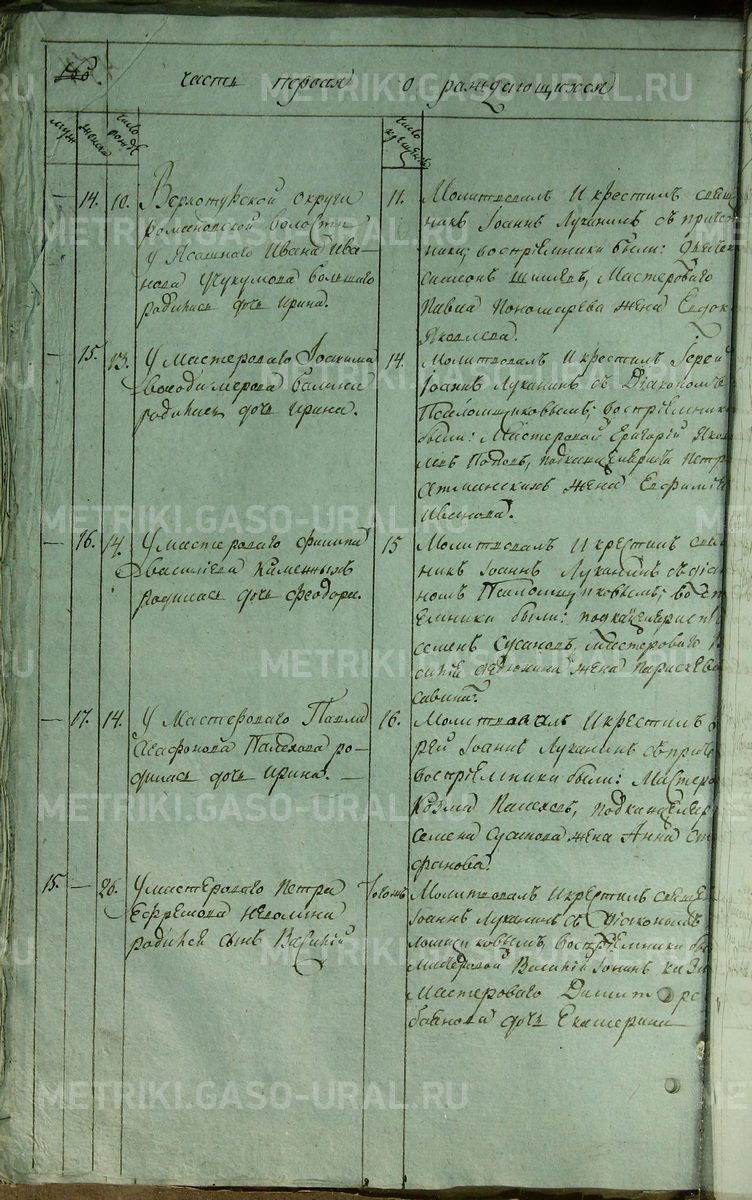 часть первая о раждающихся
муж женск число рожде
число крещен
— 14. 10. Верхотурской округи
романовской волости
у Ясашнаго Ивана Ива-
нова Чукумова большаго
родилась дочь Ирина.
11. Молитвовалъ И крестилъ свящ
никъ Iоаннъ Луканинъ съ приче
ники; воспрiемники были:
симеонъ шишевъ, Мастероваго
Павла Пономарева жена Евдок
Яковлева.
— 15. 13. У Мастероваго Iоакима
володимерова балина
родилась дочь Ирина.
14. Молитвовалъ И крестилъ Iерей
Iоаннъ Луканинъ съ Дiакономъ
Псаломщиковымъ; воспрiемники
были: Мастеровой Григорiй Яков
левъ Поповъ, подканцеляриста Петр
жена Евфимiя
Иванова.
— 16. 14. У мастероваго филипа
васильева Каменныхъ
родилась дочь феодора.
15 Молитвовалъ И крестилъ свящ
никъ Iоаннъ Луканинъ съ дiак
номъ Псаломщиковымъ; воспрi
емники были: подканцелярист
семенъ Сусановъ, мастероваго
жена Параскева
савина.
— 17. 14. У Мастероваго Павла
Агафонова Палехова ро-
дилась дочь Ирина. —
16. Молитвовалъ И крестилъ
рей Iоаннъ Луканинъ съ приче
воспрiемники были: Мастеро
Козма Палехов, подканцеляр
семена сусанова жена Анна Ст
фанова.
15. — 26. У мастероваго Петра
Ефремова Неволина
родился сынъ Василiй
Молитвовалъ И крестилъ свяще
Iоаннъ Луканинъ съ дiакономъ
ломщиковымъ, воспрiемники бы
мастеровой Василiй
Мастероваго Димитр
банова дочь Екатерина
METRIKI.GASO-URAL.RU